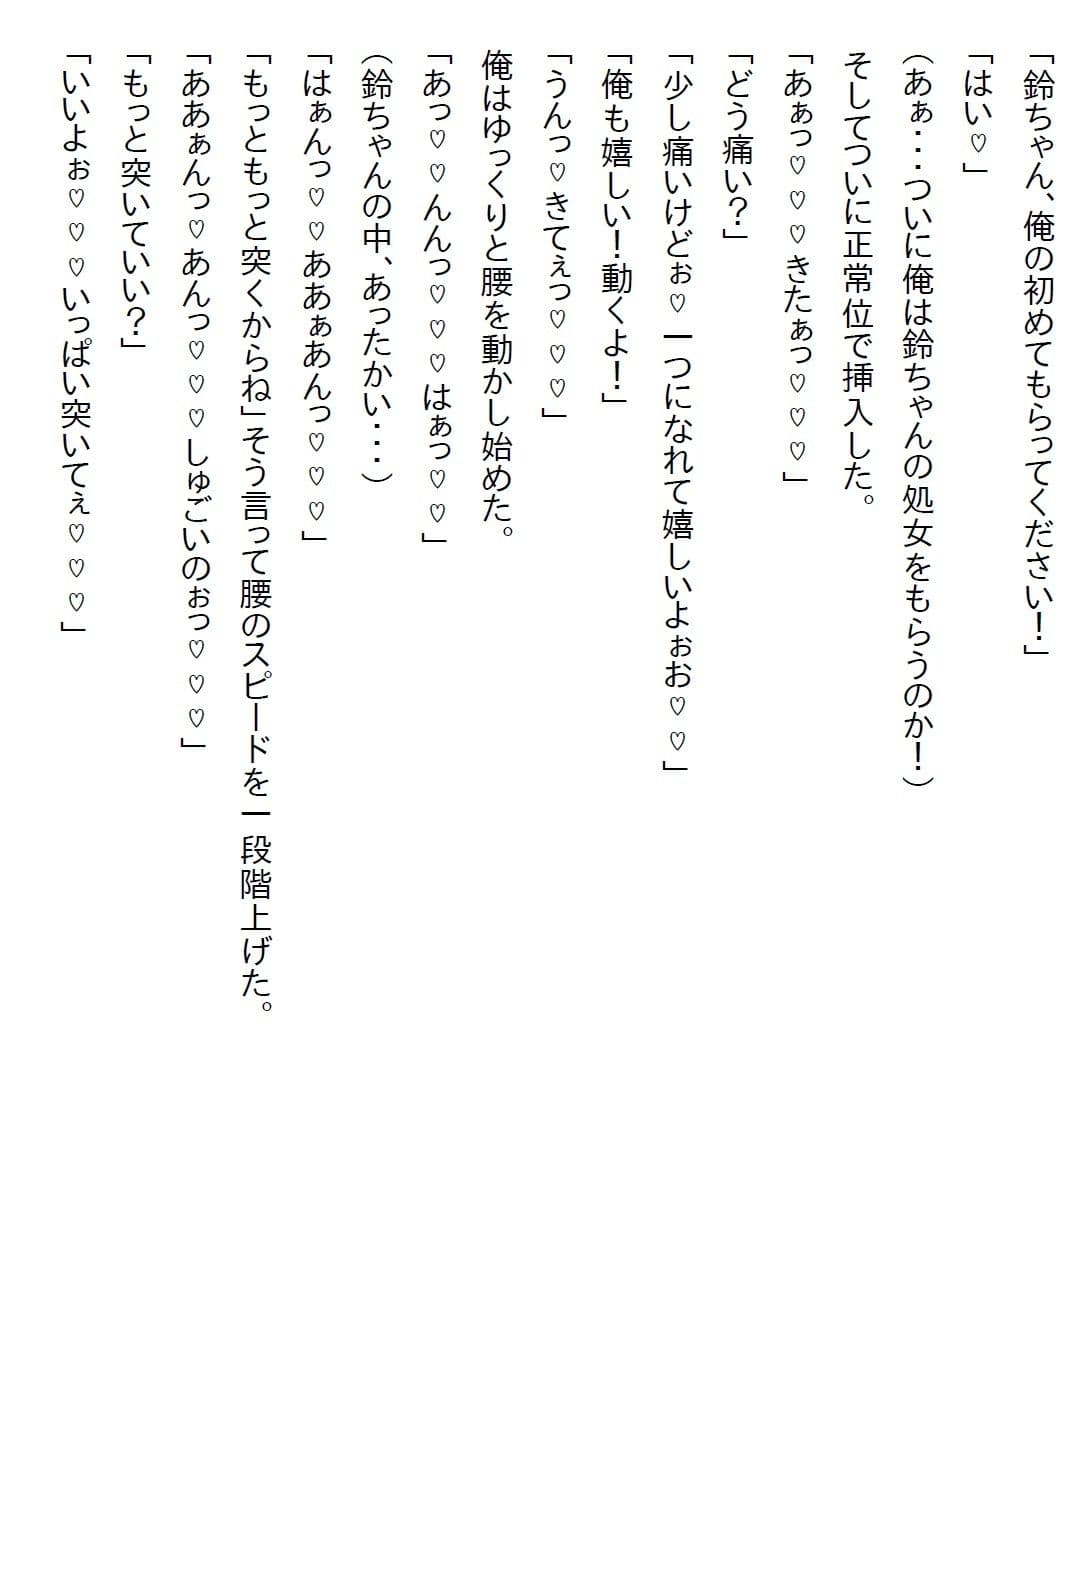 「鈴ちゃん、俺の初めてもらってください！」
「はい♡」
（あぁ･･･ついに俺は鈴ちゃんの処女をもらうのか！）
そしてついに正常位で挿入した。
「あぁっ♡♡♡きたぁっ♡♡♡」
「どう痛い？」
「少し痛いけどぉ♡一つになれて嬉しいよぉお♡♡」
「俺も嬉しい！動くよ！」
「うんっ♡きてぇっ♡♡♡」
俺はゆっくりと腰を動かし始めた。
「あっ♡♡んんっ♡♡♡はぁっ♡♡」
（鈴ちゃんの中、あったかい･･･）
「はぁんっ♡♡ああぁあんっ♡♡♡」
「もっともっと突くからね」そう言って腰のスピードを一段階上げた。
「ああぁんっ♡あんっ♡♡♡しゅごいのぉっ♡♡♡」
「もっと突いていい？」
「いいよぉ♡♡♡いっぱい突いてぇ♡♡♡」